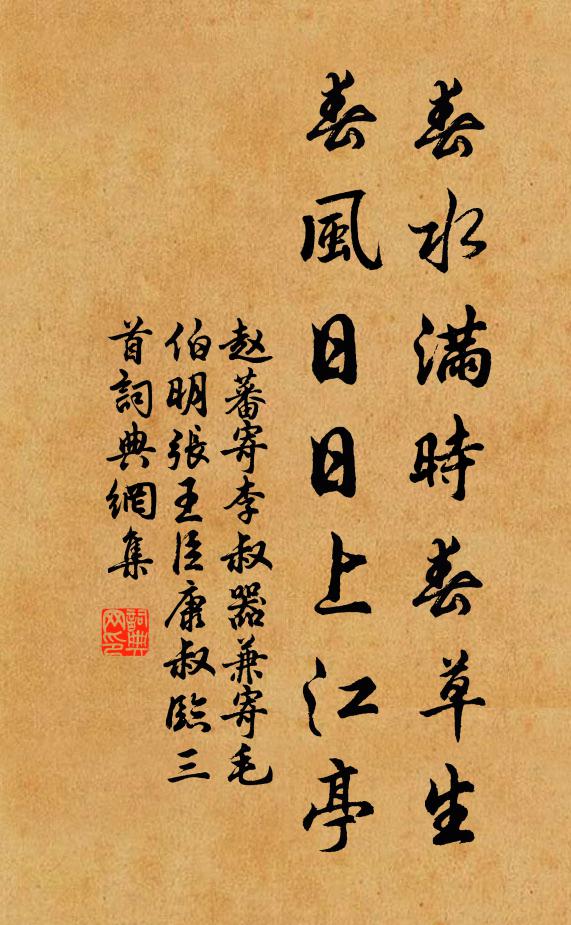 春水滿時春草生
春風日日上江亭
赵蕃寄李叔器兼寄毛
伯明張王臣康叔臨三
首詞典網集
詞典
网印